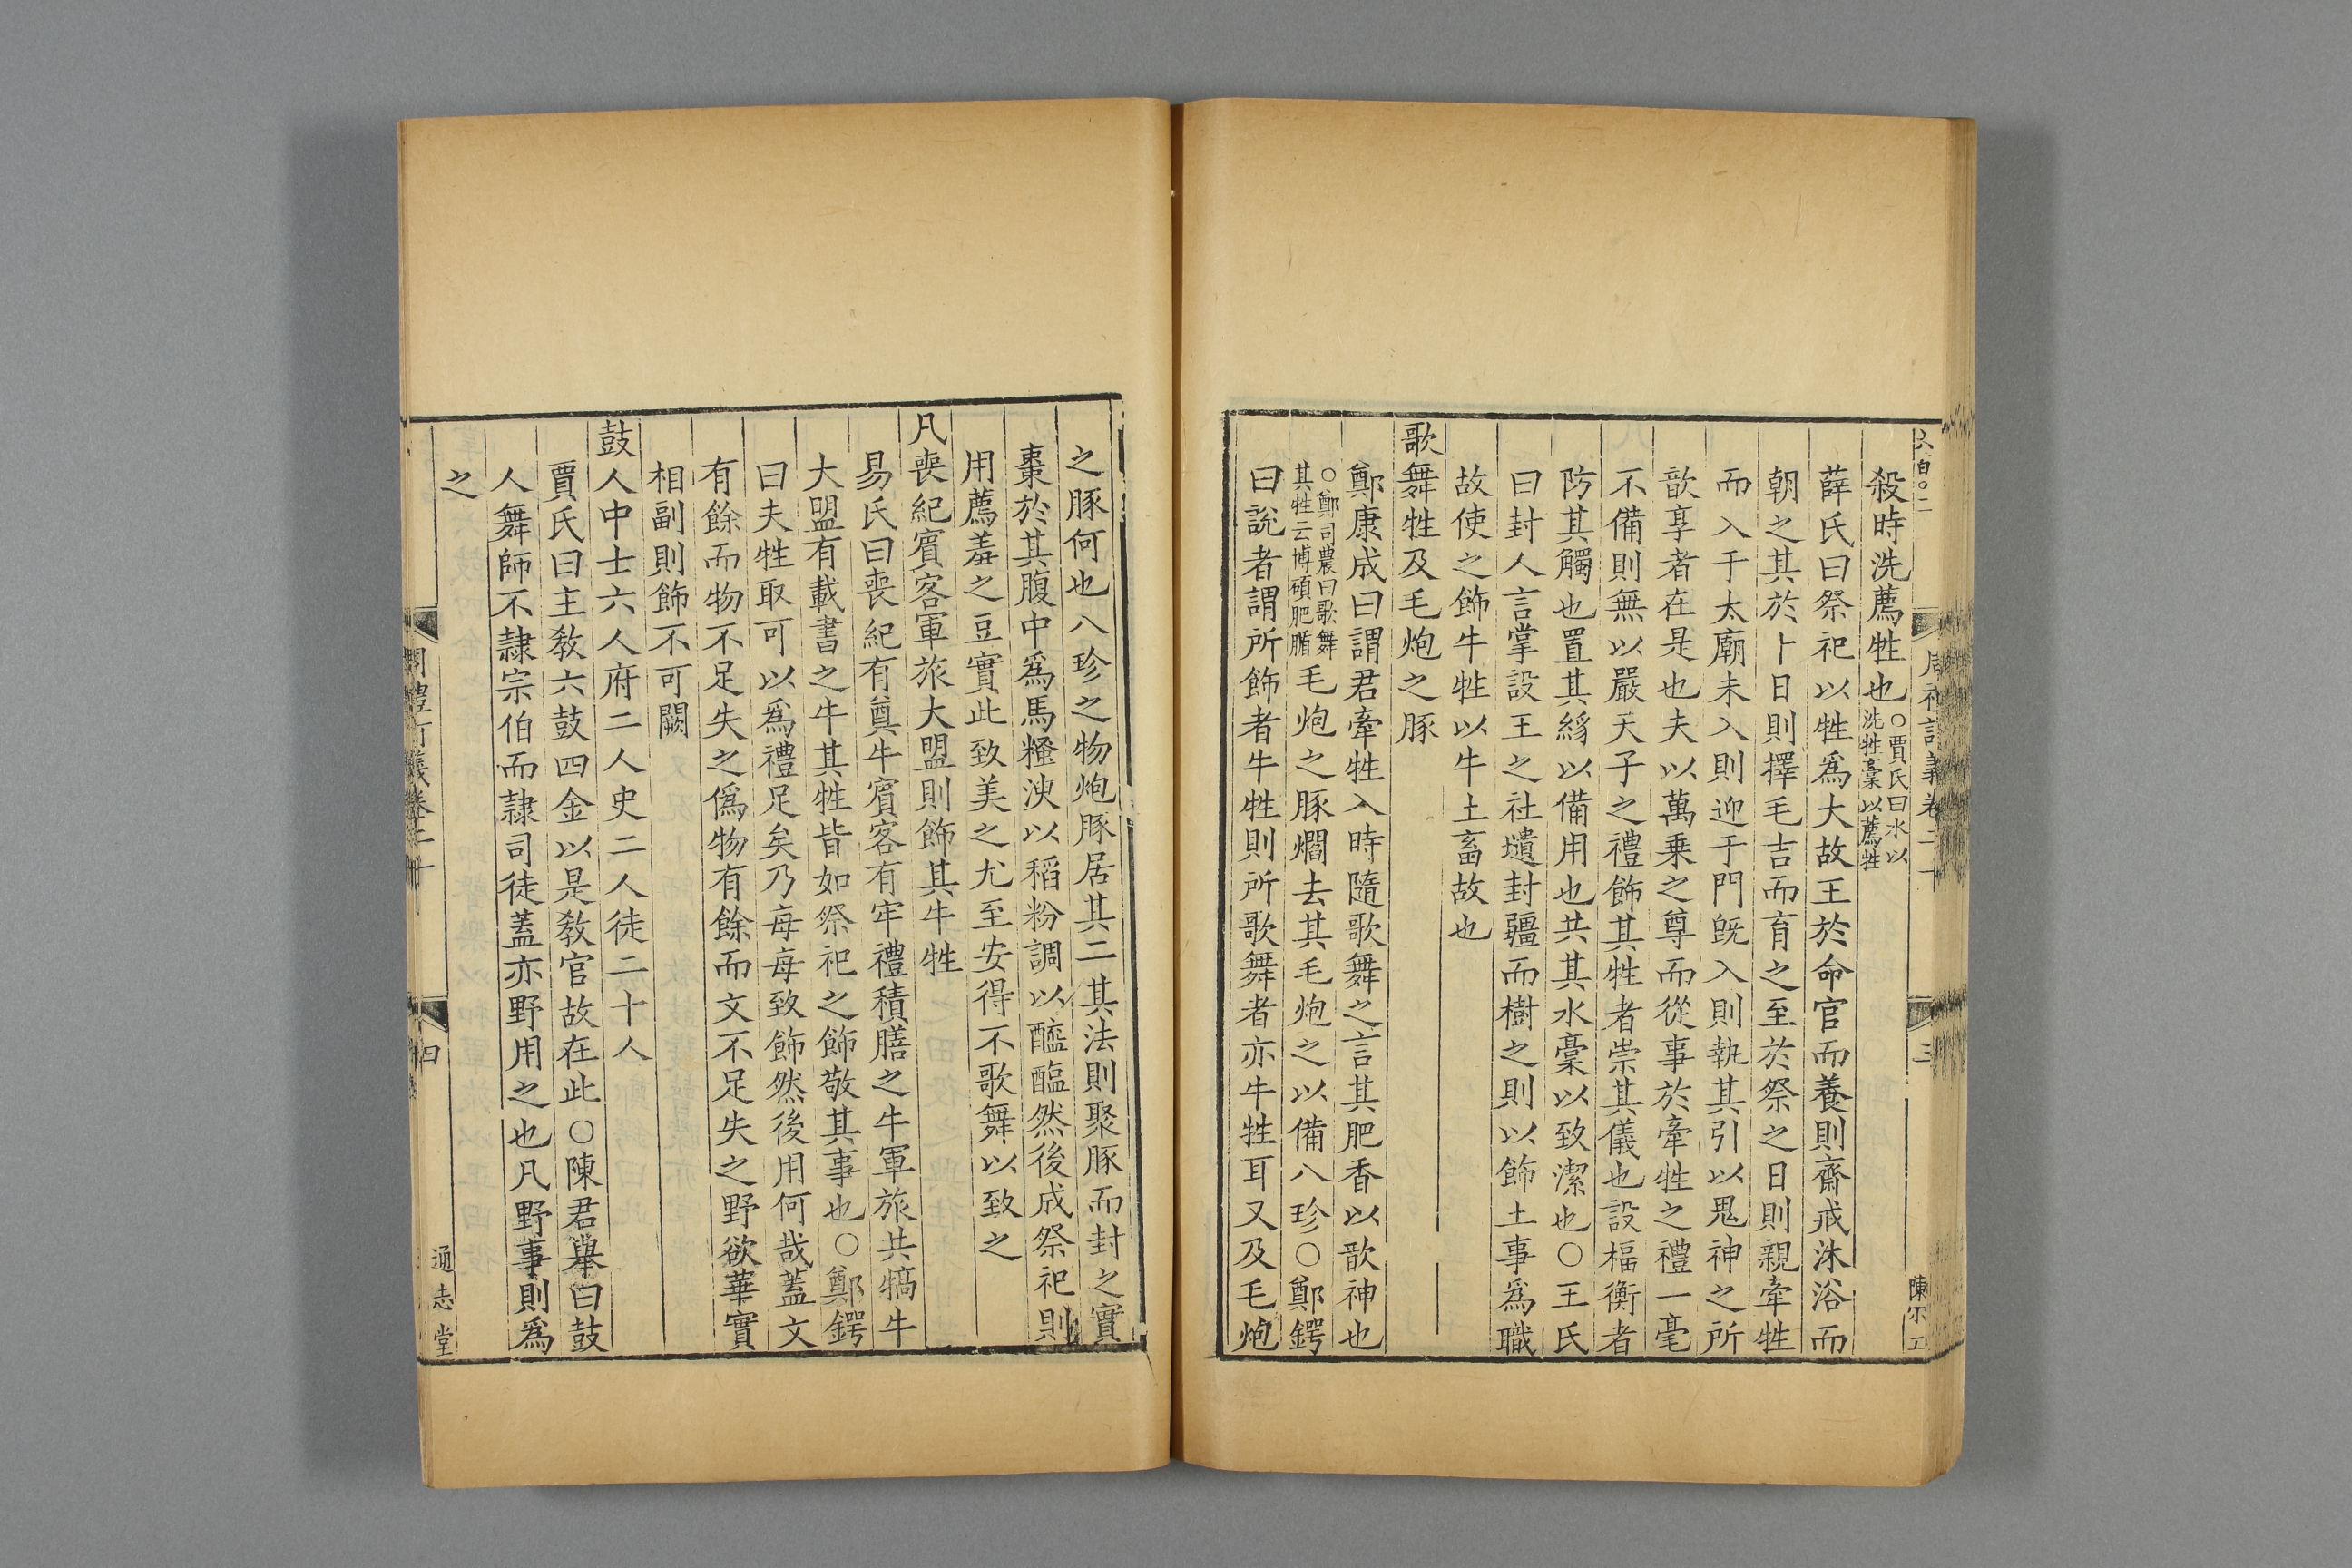 殺時洗薦牲也○賈氏曰水以洗牲藁以薦牲
薛氏曰祭祀以牲爲大故王於命官而養則齋戒沐浴而
朝之其於卜日則擇毛吉而育之至於祭之日則親牽牲
而入于太廟未入則迎于門旣入則執其引以鬼神之所
歆享者在是也夫以萬乗之尊而從事於牽牲之禮一毫
不備則無以嚴天子之禮飾其牲者崇其儀也設楅衡者
防其觸也置其絼以備用也共其水藁以致潔也○王氏
曰封人言掌設王之社壝封疆而樹之則以飾土事爲職
故使之飾牛牲以牛土畜故也
歌舞牲及毛炮之豚
鄭康成曰謂君牽牲入時隨歌舞之言其肥香以歆神也
○鄭司農曰歌舞其牲云博碩肥腯毛炮之豚爓去其毛炮之以備八珍○鄭鍔
曰説者謂所飾者牛牲則所歌舞者亦牛牲耳又及毛炮
之豚何也八珍之物炮豚居其二其法則聚豚而封之實
棗於其腹中爲馬糔溲以稻粉調以醯醢然後成祭祀則
用薦羞之豆實此致美之尤至安得不歌舞以致之
凡喪紀賓客軍旅大盟則飾其牛牲
易氏曰喪紀有奠牛賓客有牢禮積膳之牛軍旅共犒牛
大盟有載書之牛其牲皆如祭祀之飾敬其事也○鄭鍔
曰夫牲取可以爲禮足矣乃毎毎致飾然後用何哉蓋文
有餘而物不足失之僞物有餘而文不足失之野欲華實
相副則飾不可闕
鼓人中士六人府二人史二人徒二十人
賈氏曰主敎六鼓四金以是敎官故在此○陳君舉曰鼓
人舞師不隷宗伯而隷司徒蓋亦野用之也凡野事則爲
之
四
通志堂